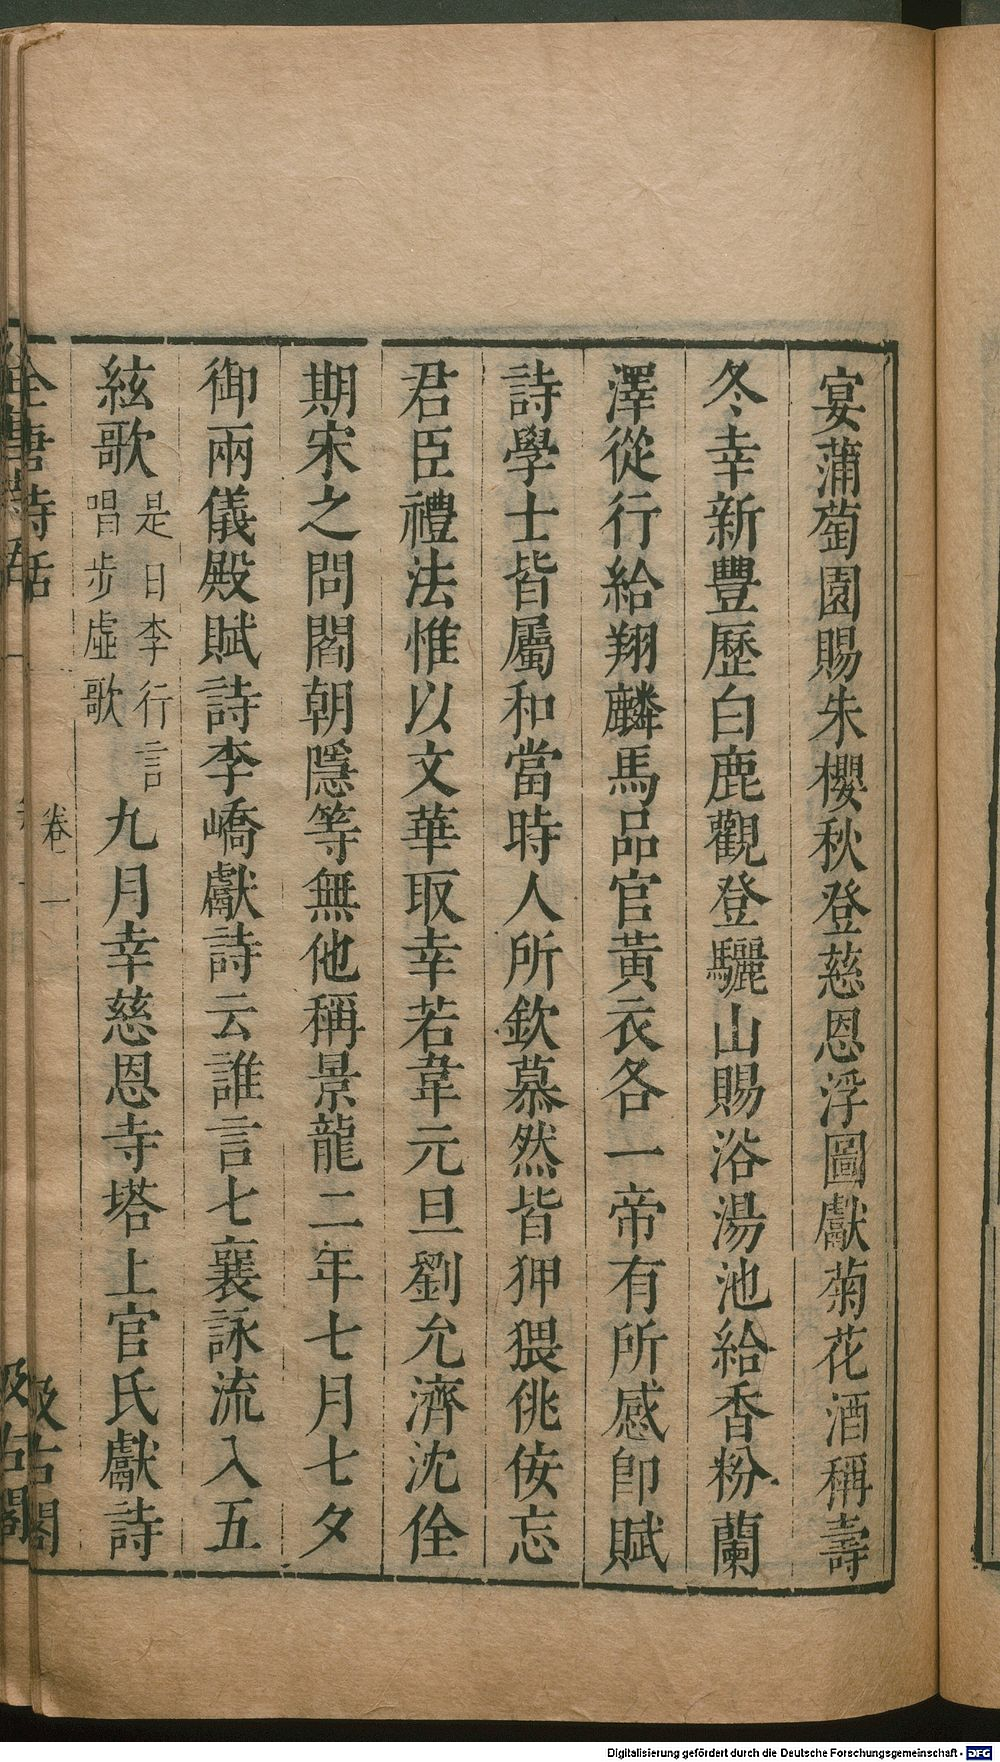 宴蒲萄園賜朱櫻秋登慈恩浮圖獻菊花酒稱壽
冬幸新豐歷白鹿觀登驪山賜浴湯池給香粉蘭
澤從行給翔麟馬品官黃衣各一帝有所感卽賦
詩學士皆屬和當時人所欽慕然皆狎猥佻佞忘
君臣禮法惟以文華取幸若韋元旦劉允濟沈佺
期宋之問閻朝隱等無他稱景龍二年七月七夕
御兩儀殿賦詩李嶠獻詩云誰言七襄詠流入五
絃歌是日李行言唱步虛歌九月幸慈恩寺塔上官氏獻詩
全唐詩話 卷一 汲古閣
Digitalisierung gefördert durch die Deutsche Forschungsgemeinschaft - DFG